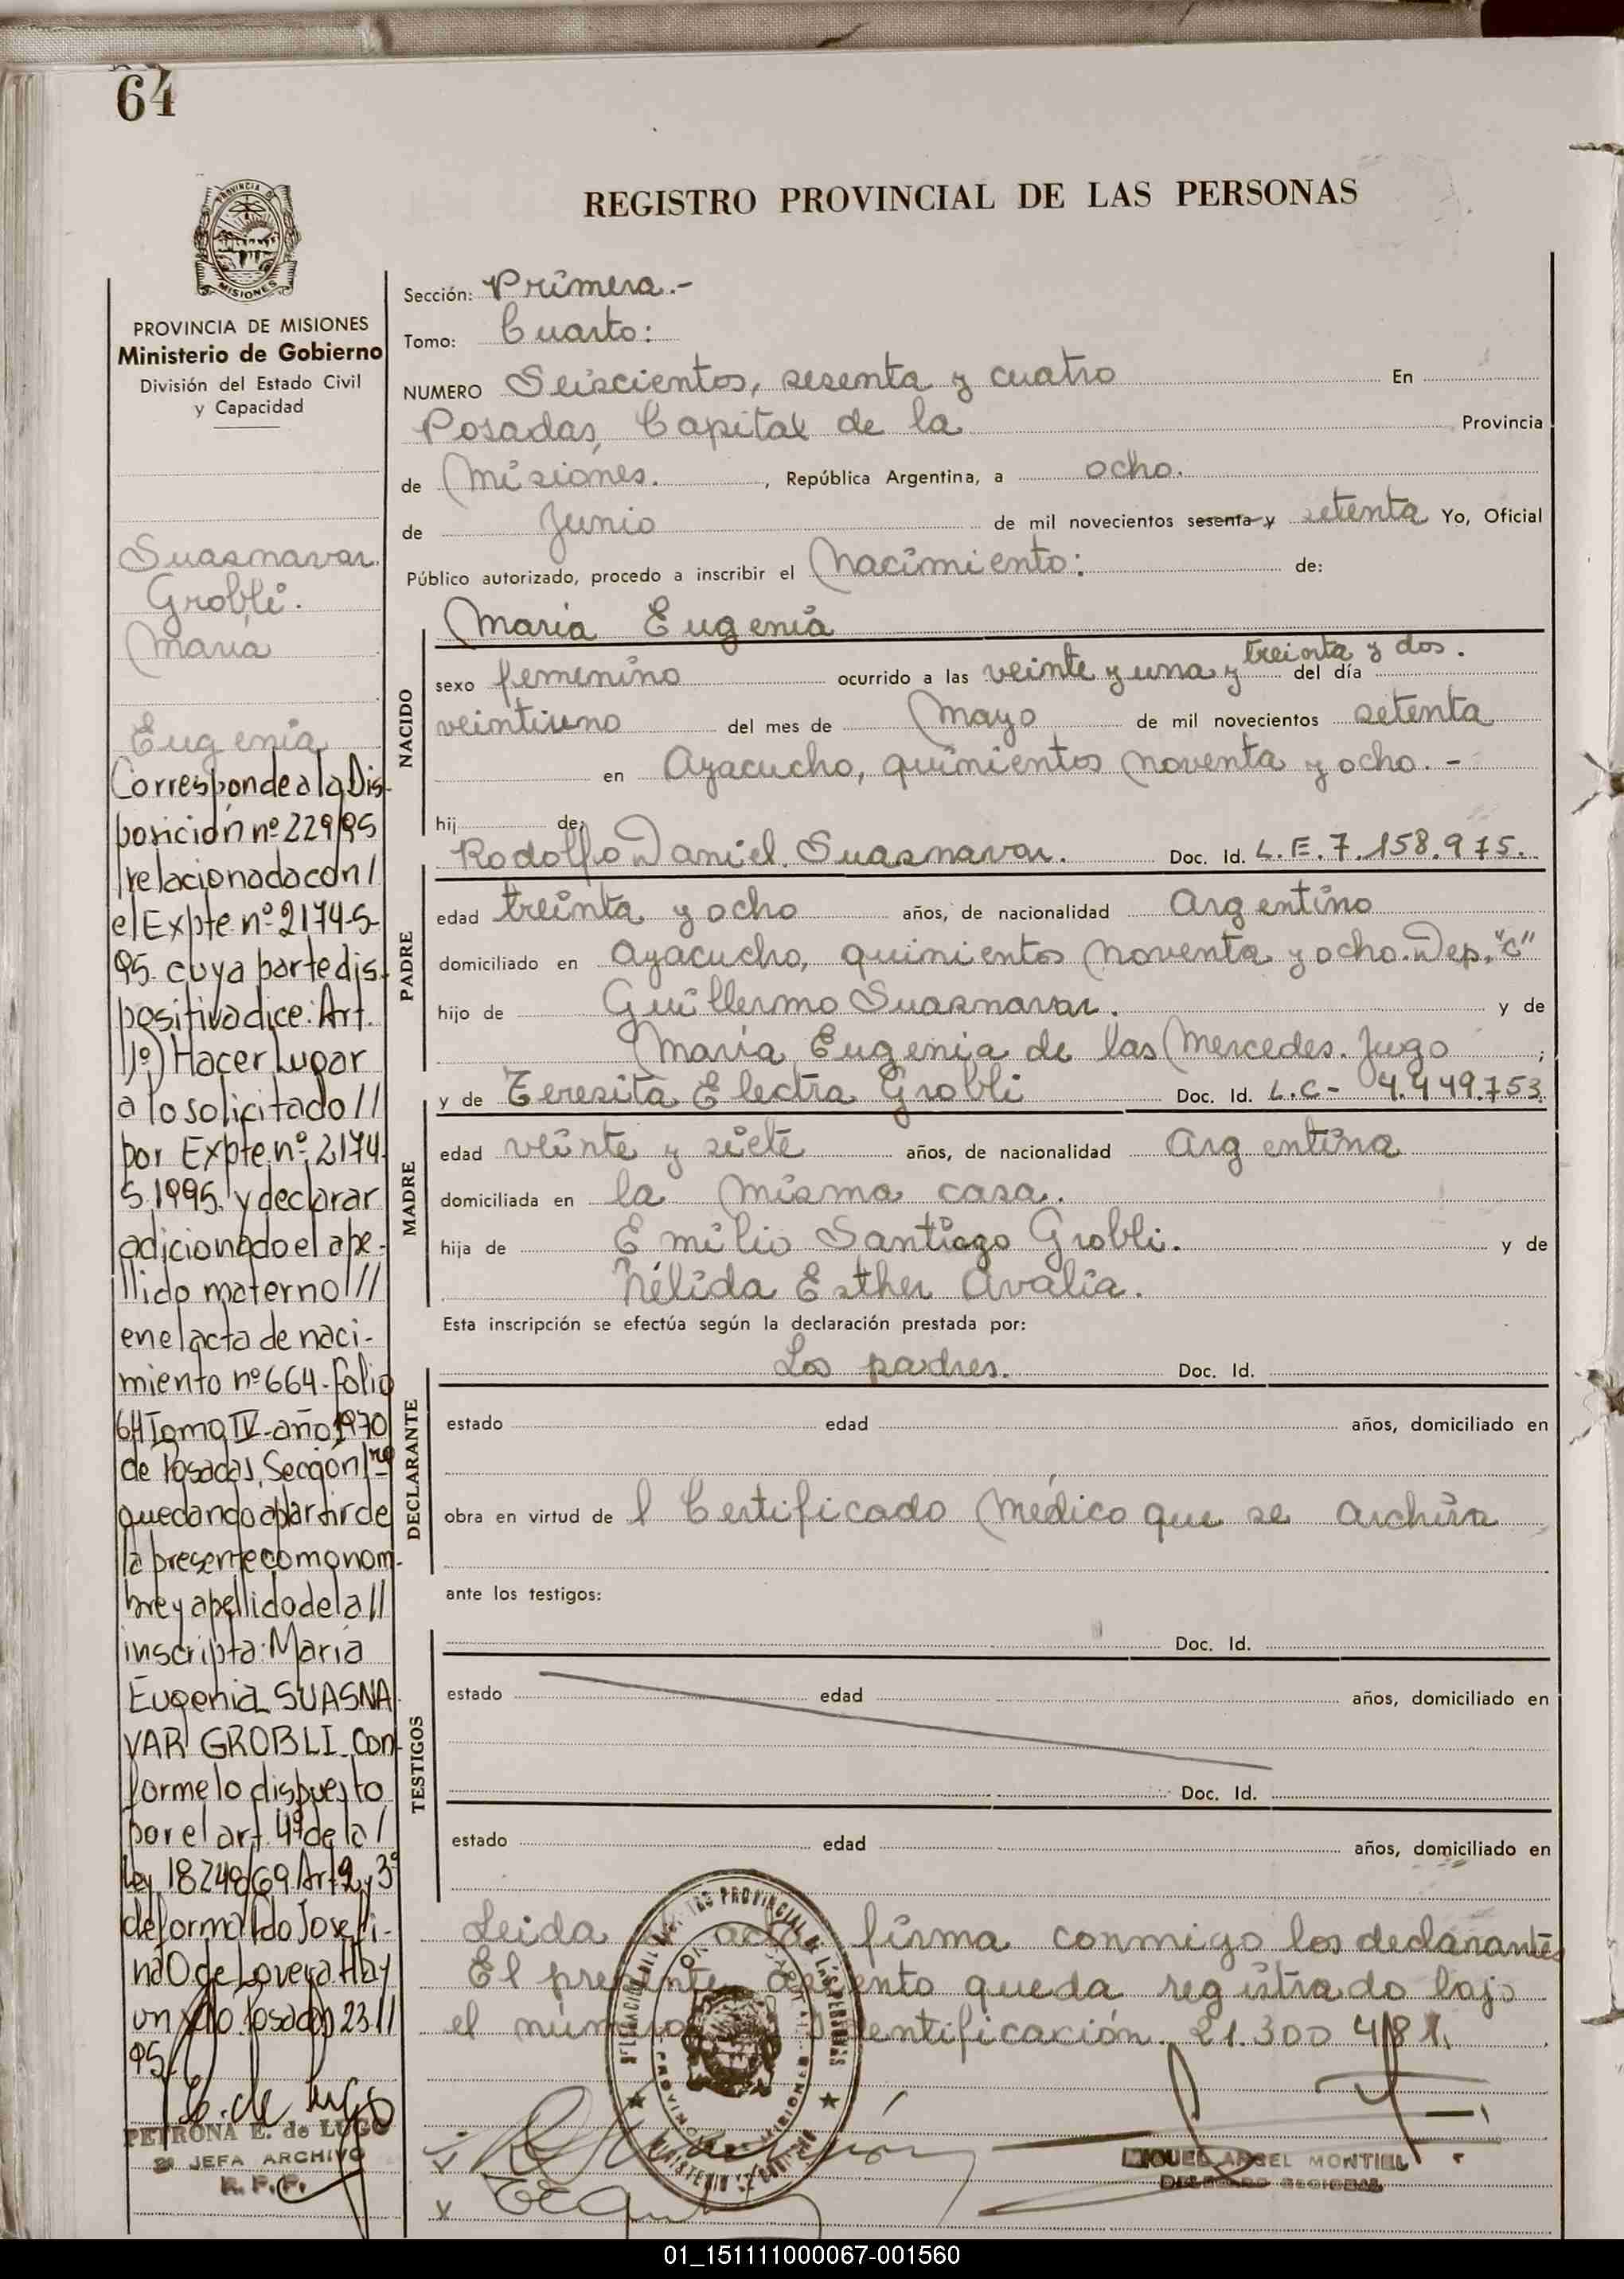 64
REGISTRO PROVINCIAL DE LAS PERSONAS
PROVINCIA DE
MISIONES
PROVINCIA DE MISIONES
Ministerio de Gobierno
División del Estado Civil
y Capacidad
Suasnavar
Grobli.
María
Eugenia
Corresponde a la Dis-
posición nº 229/95
relacionada con /
el Expte nº 2174-S-
95. cuya parte dis-
positiva dice: Art.
1º) Hacer Lugar
a lo solicitado //
por Expte nº 2174-
S.1995. y declarar
adicionado el ape-
llido materno ///
en el acta de naci-
miento nº 664-folio
64 Tomo IV-año 1970
de Posadas, Sección 1ra
quedando a partir de
la presente como nom-
bre y apellido de la //
inscripta: María
Eugenia SUASNA
VAR GROBLI. Con-
forme lo dispuesto
por el art. 4º de la /
Ley 18248/69. Art 2 y 3º
de forma. Fdo Josefi-
na O de Lovera. Hay
un sello. Posadas 23 11
95.
PETRONA E. de LUGO
JEFA ARCHIVO
R. P. P.
Sección: Primera.-
Tomo: Cuarto:
NUMERO Seiscientos, sesenta y cuatro En
Posadas, Capital de la Provincia
de Misiones. , República Argentina, a ocho.
de Junio de mil novecientos sesenta y setenta Yo, Oficial
Público autorizado, procedo a inscribir el Nacimiento: de:
María Eugenia
NACIDO
sexo femenino ocurrido a las veinte y una y treinta y dos. del día
veintiuno del mes de Mayo de mil novecientos setenta
en Ayacucho, quinientos noventa y ocho. -
hij de:
Rodolfo Daniel Suasnavar. Doc. Id. L.E. 7.158.975.
PADRE
edad treinta y ocho años, de nacionalidad Argentino
domiciliado en Ayacucho, quinientos noventa y ocho. Dep. "C"
hijo de Guillermo Suasnavar. y de
María Eugenia de las Mercedes. Jugo ;
y de Teresita Electra Grobli Doc. Id. L.C- 4.449.753.
MADRE
edad veinte y siete años, de nacionalidad Argentina
domiciliada en la misma casa.
hija de Emilio Santiago Grobli. y de
Nélida Esther Avalia.
Esta inscripción se efectúa según la declaración prestada por:
Los padres. Doc. Id.
DECLARANTE
estado edad años, domiciliado en
obra en virtud de l Certificado Médico que se archiva
ante los testigos:
Doc. Id.
TESTIGOS
estado edad años, domiciliado en
Doc. Id.
estado edad años, domiciliado en
Leida el acta, firma conmigo los declarantes
El presente asiento queda registrado bajo
el número de Identificación. 21.300 481.
MIGUEL ANGEL MONTIEL
DELEGADO REGIONAL
01_151111000067-001560